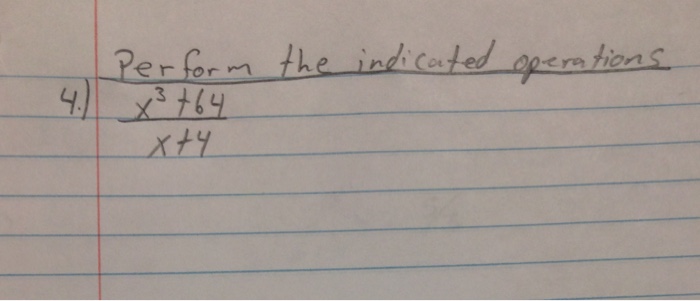 Perform the indicated operations
4.) x³+64
x+4